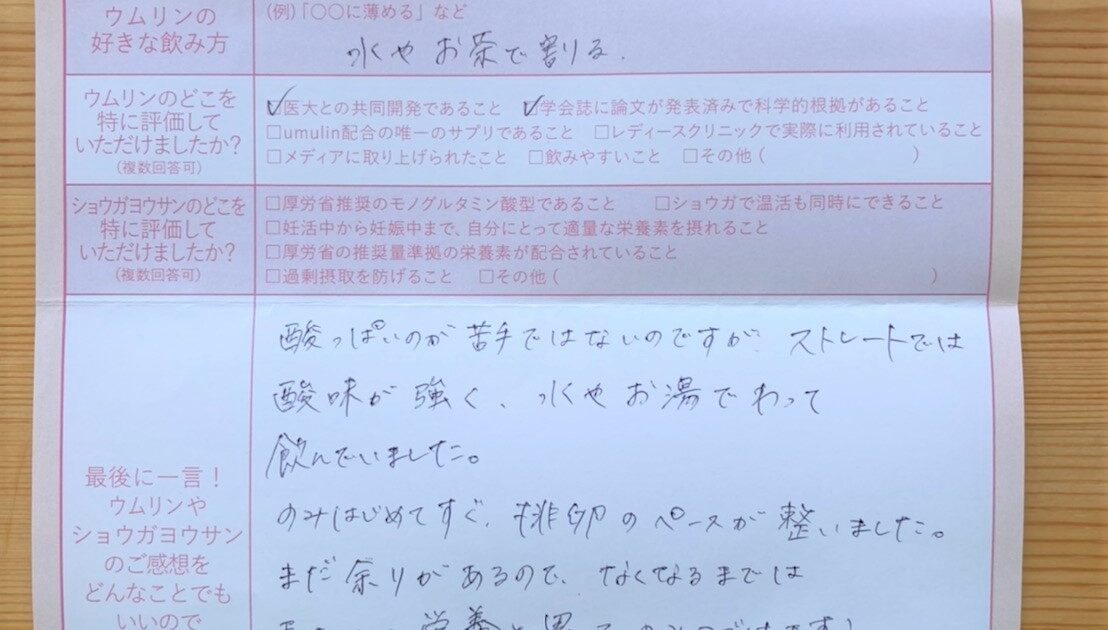 ウムリンの
好きな飲み方
(例)「○○に薄める」など
水や お茶で割る.
ウムリンのどこを
特に評価して
いただけましたか?
(複数回答可)
☑医大との共同開発であること ☑学会誌に論文が発表済みで科学的根拠があること
□umulin配合の唯一のサプリであること □レディースクリニックで実際に利用されていること
□メディアに取り上げられたこと □飲みやすいこと □その他( )
ショウガヨウサンのどこを
特に評価して
いただけましたか?
(複数回答可)
□厚労省推奨のモノグルタミン酸型であること □ショウガで温活も同時にできること
□妊活中から妊娠中まで、自分にとって適量な栄養素を摂れること
□厚労省の推奨量準拠の栄養素が配合されていること
□過剰摂取を防げること □その他( )
最後に一言!
ウムリンや
ショウガヨウサン
のご感想を
どんなことでも
いいので
酸っぱいのが苦手ではないのですが、ストレートでは
酸味が強く、水やお湯でわって
飲んでいました。
のみはじめてすぐ、排卵のペースが整いました。
まだ余りがあるので、なくなるまでは
栄養と思って